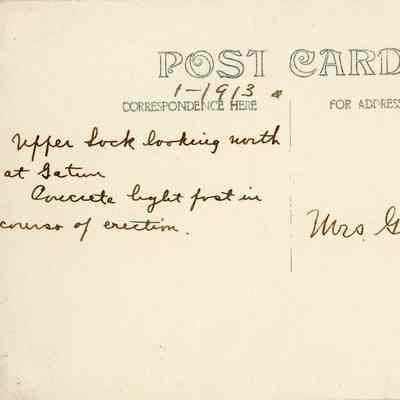 POST CARD
1-1913
CORRESPONDENCE HERE
FOR ADDRESS
Upper Lock looking north
at Gatun
Concrete light post in
course of erection.
Mrs. G